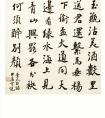 玉瓶沽美酒數里
送君還繫馬垂楊
下銜盃大道間天
邊看綠水海上見
青山興罷各分袂
何須醉別顏